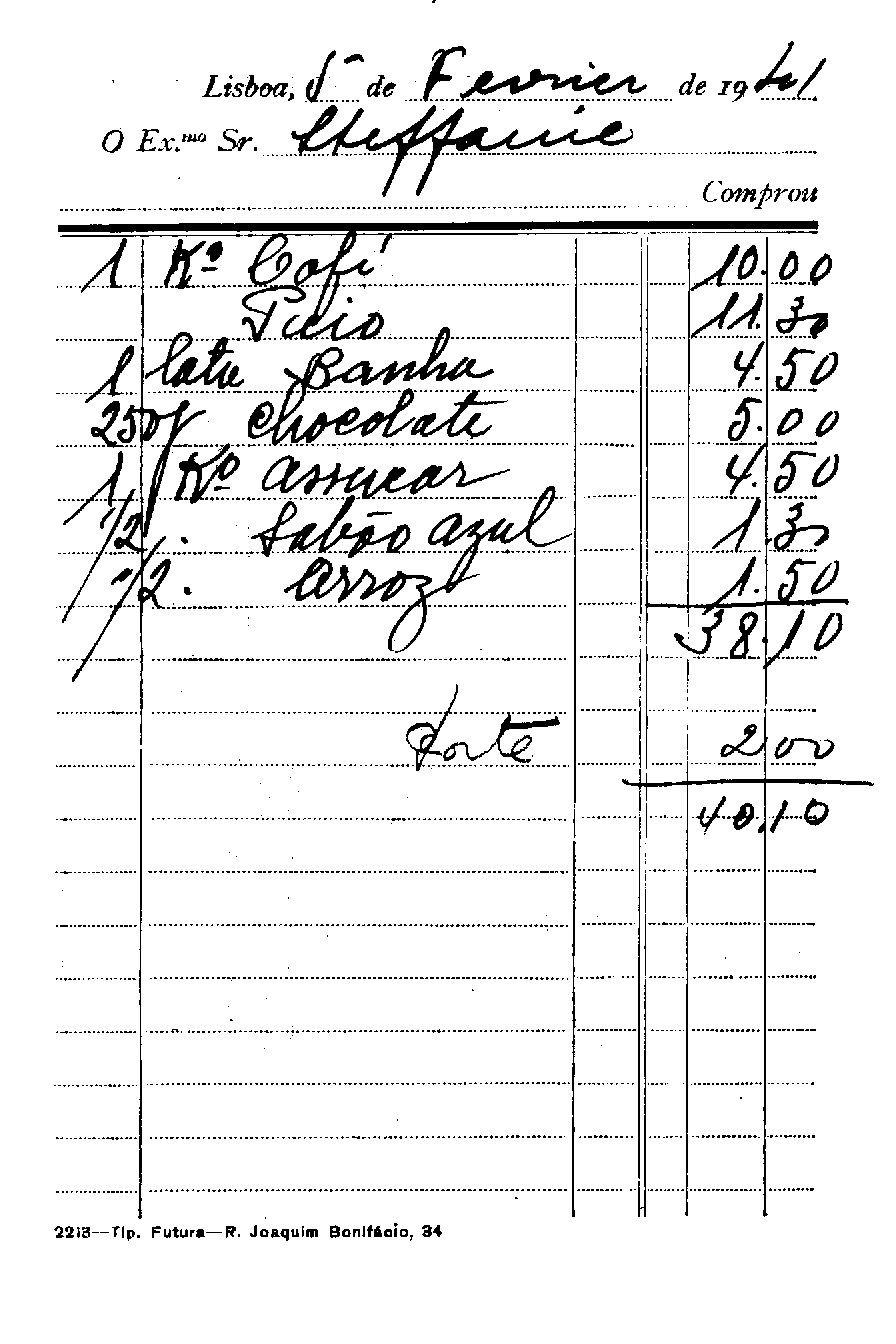 Lisboa, 5 de Fevrier de 1941
O Ex.mo Sr. Steffanie
Comprou
1 Kº Café 10.00
Paio 11.30
1 lata Banha 4.50
250g Chocolate 5.00
1 Kº Assucar 4.50
1/2 . Sabão Azul 1.30
1/2 . Arroz 1.50
38.10
Porte 2.00
40.10
2213—Tip. Futura—R. Joaquim Bonifácio, 34